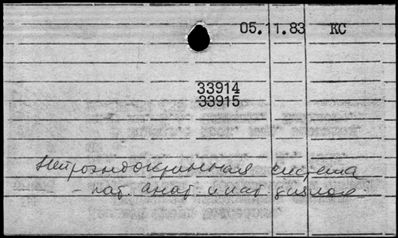 05.11.83 КС
33914
33915
Нейроэндокринная система
- пат. анат. и пат. физиол.